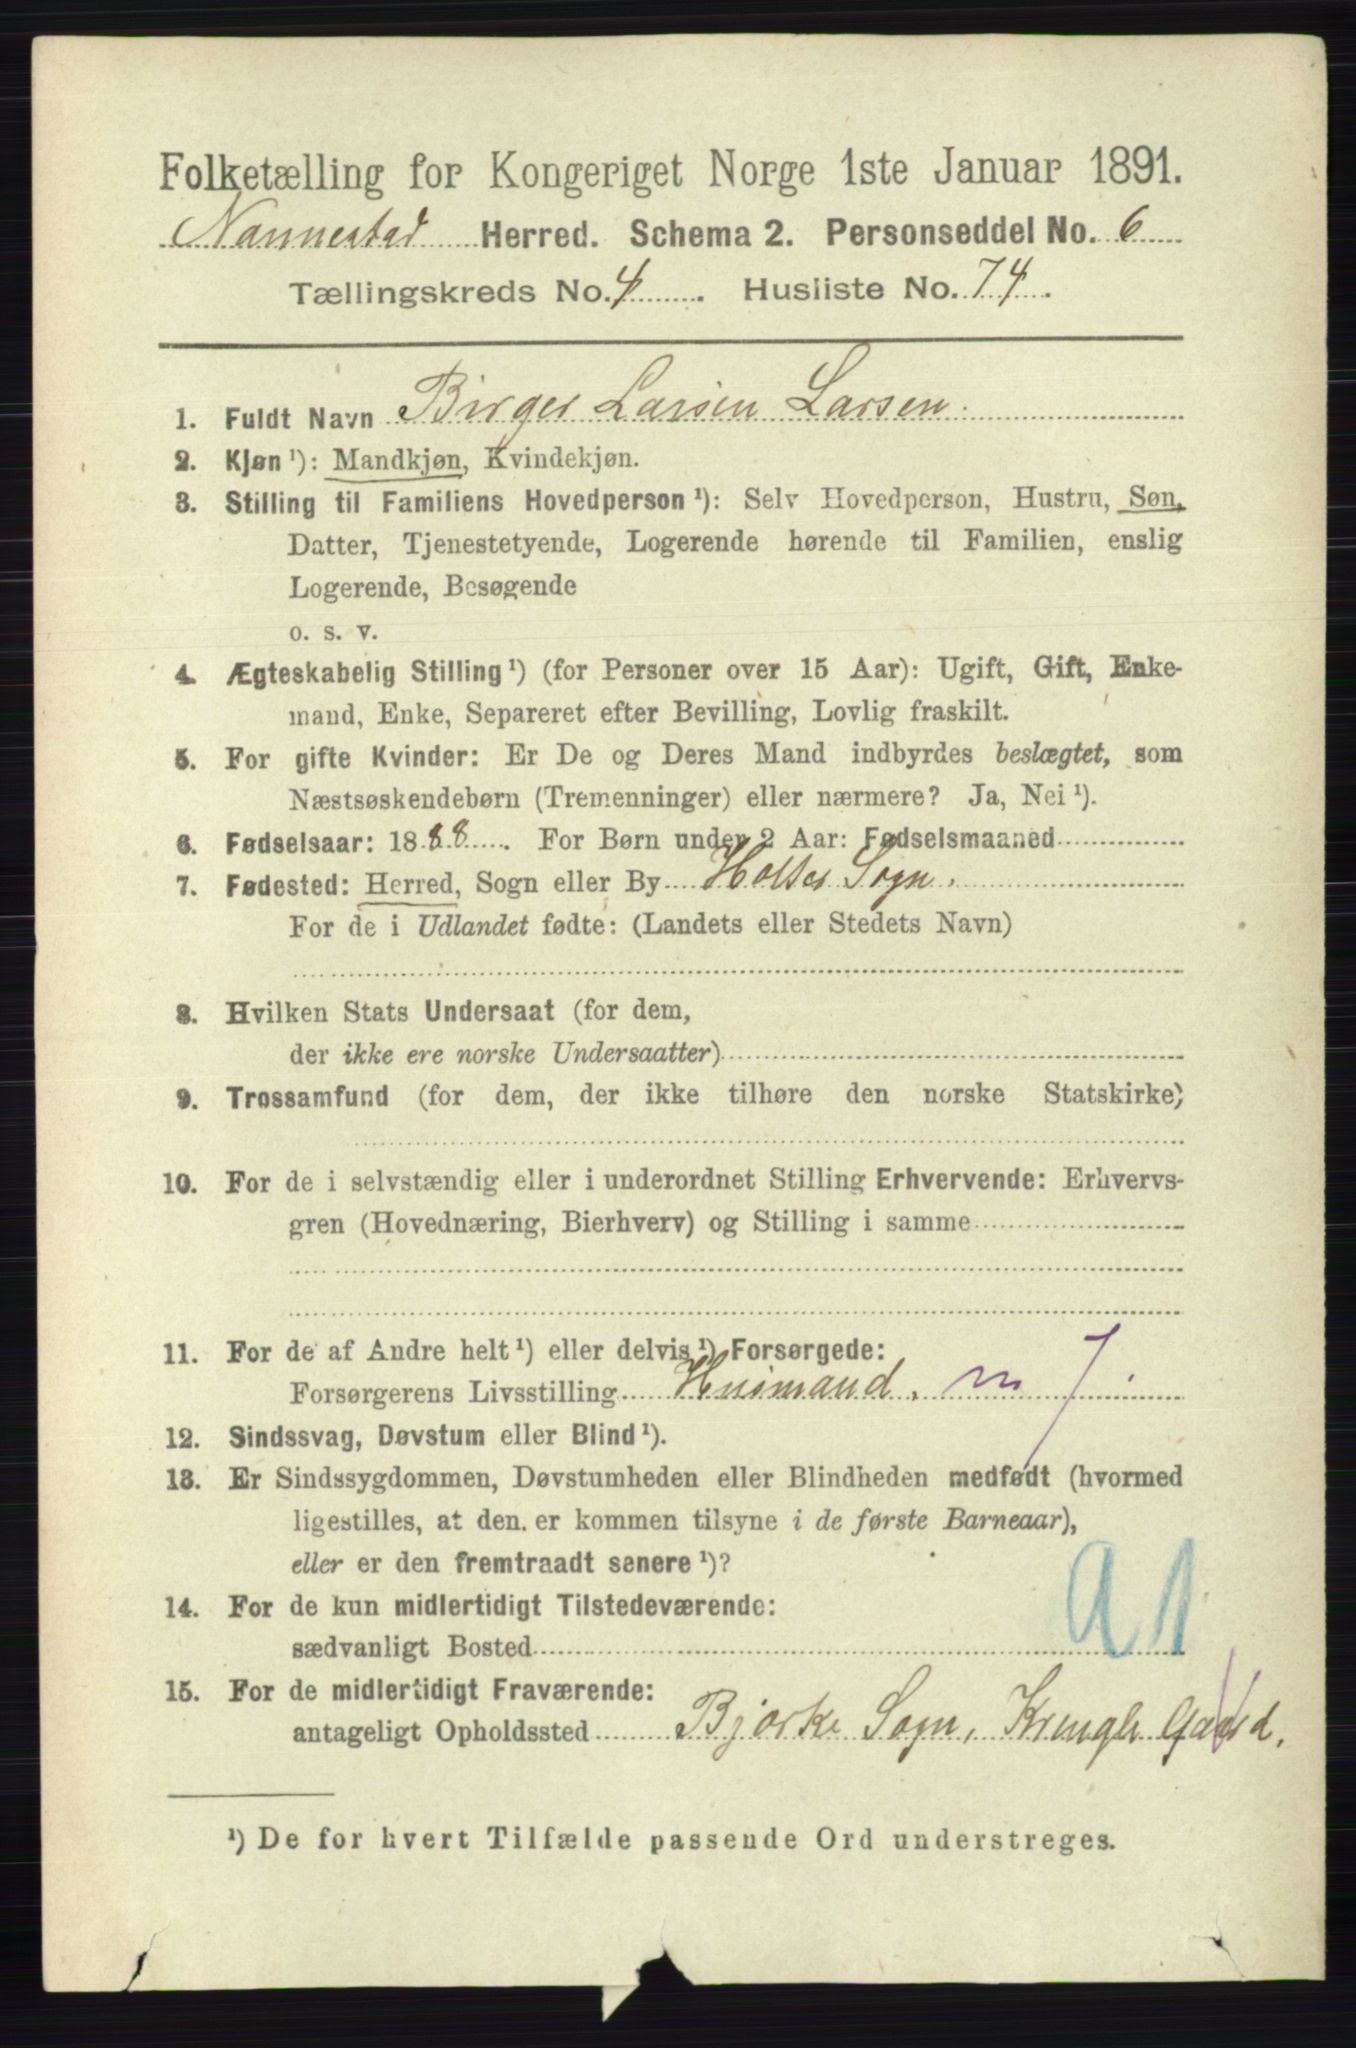 Folketælling for Kongeriget Norge 1ste Januar 1891.
Nannestad Herred. Schema 2. Personseddel No. 6
Tællingskreds No. 4. Husliste No. 74.
1. Fuldt Navn Birger Larsen Larsen.
2. Kjøn ¹): Mandkjøn, Kvindekjøn.
3. Stilling til Familiens Hovedperson ¹): Selv Hovedperson, Hustru, Søn,
Datter, Tjenestetyende, Logerende hørende til Familien, enslig
Logerende, Besøgende
o. s. v.
4. Ægteskabelig Stilling ¹) (for Personer over 15 Aar): Ugift, Gift, Enke-
mand, Enke, Separeret efter Bevilling, Lovlig fraskilt.
5. For gifte Kvinder: Er De og Deres Mand indbyrdes beslægtet, som
Næstsøskendebørn (Tremenninger) eller nærmere? Ja, Nei ¹).
6. Fødselsaar: 1888. For Børn under 2 Aar: Fødselsmaaned
7. Fødested: Herred, Sogn eller By Holter Sogn.
For de i Udlandet fødte: (Landets eller Stedets Navn)
8. Hvilken Stats Undersaat (for dem,
der ikke ere norske Undersaatter)
9. Trossamfund (for dem, der ikke tilhøre den norske Statskirke)
10. For de i selvstændig eller i underordnet Stilling Erhvervende: Erhvervs-
gren (Hovednæring, Bierhverv) og Stilling i samme
11. For de af Andre helt ¹) eller delvis ¹) Forsørgede:
Forsørgerens Livsstilling Husmand. m J.
12. Sindssvag, Døvstum eller Blind ¹).
13. Er Sindssygdommen, Døvstumheden eller Blindheden medfødt (hvormed
ligestilles, at den er kommen tilsyne i de første Barneaar),
eller er den fremtraadt senere ¹)?
14. For de kun midlertidigt Tilstedeværende:
sædvanligt Bosted a 1
15. For de midlertidigt Fraværende:
antageligt Opholdssted Bjørke Sogn, Kringler Gaard.
¹) De for hvert Tilfælde passende Ord understreges.